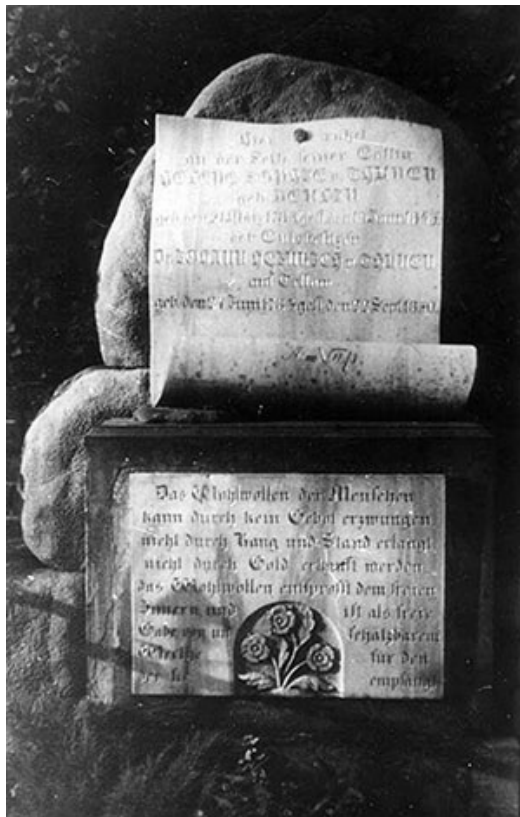 Hier ruhet
an der Seite seiner Gattin
HELENE SOPHIE v. THÜNEN
geb. BERLIN
der Gutsbesitzer
Dr. JOHANN HEINRICH v. THÜNEN
auf Tellow
geb. den Juni gest. den 22 Sept. 1850.
Das Wohlwollen der Menschen
kann durch kein Gebot erzwungen
nicht durch Rang und Stand erlangt
nicht durch Gold erkauft werden
das Wohlwollen entsprosst dem freien
Innern und ist als freie
Gabe von un schätzbarem
Werthe für den
der sie empfängt